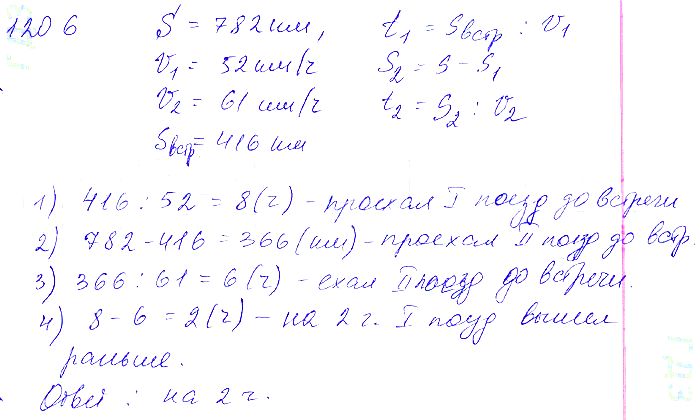 1206 S = 782 км, t₁ = Sвстр : V₁
V₁ = 52 км/ч S₂ = S - S₁
V₂ = 61 км/ч t₂ = S₂ : V₂
Sвстр = 416 км
1) 416 : 52 = 8 (ч) - проехал I поезд до встречи
2) 782 - 416 = 366 (км) - проехал II поезд до встр.
3) 366 : 61 = 6 (ч) - ехал II поезд до встречи.
4) 8 - 6 = 2 (ч) - на 2 ч. I поезд вышел
раньше.
Ответ : на 2 ч.